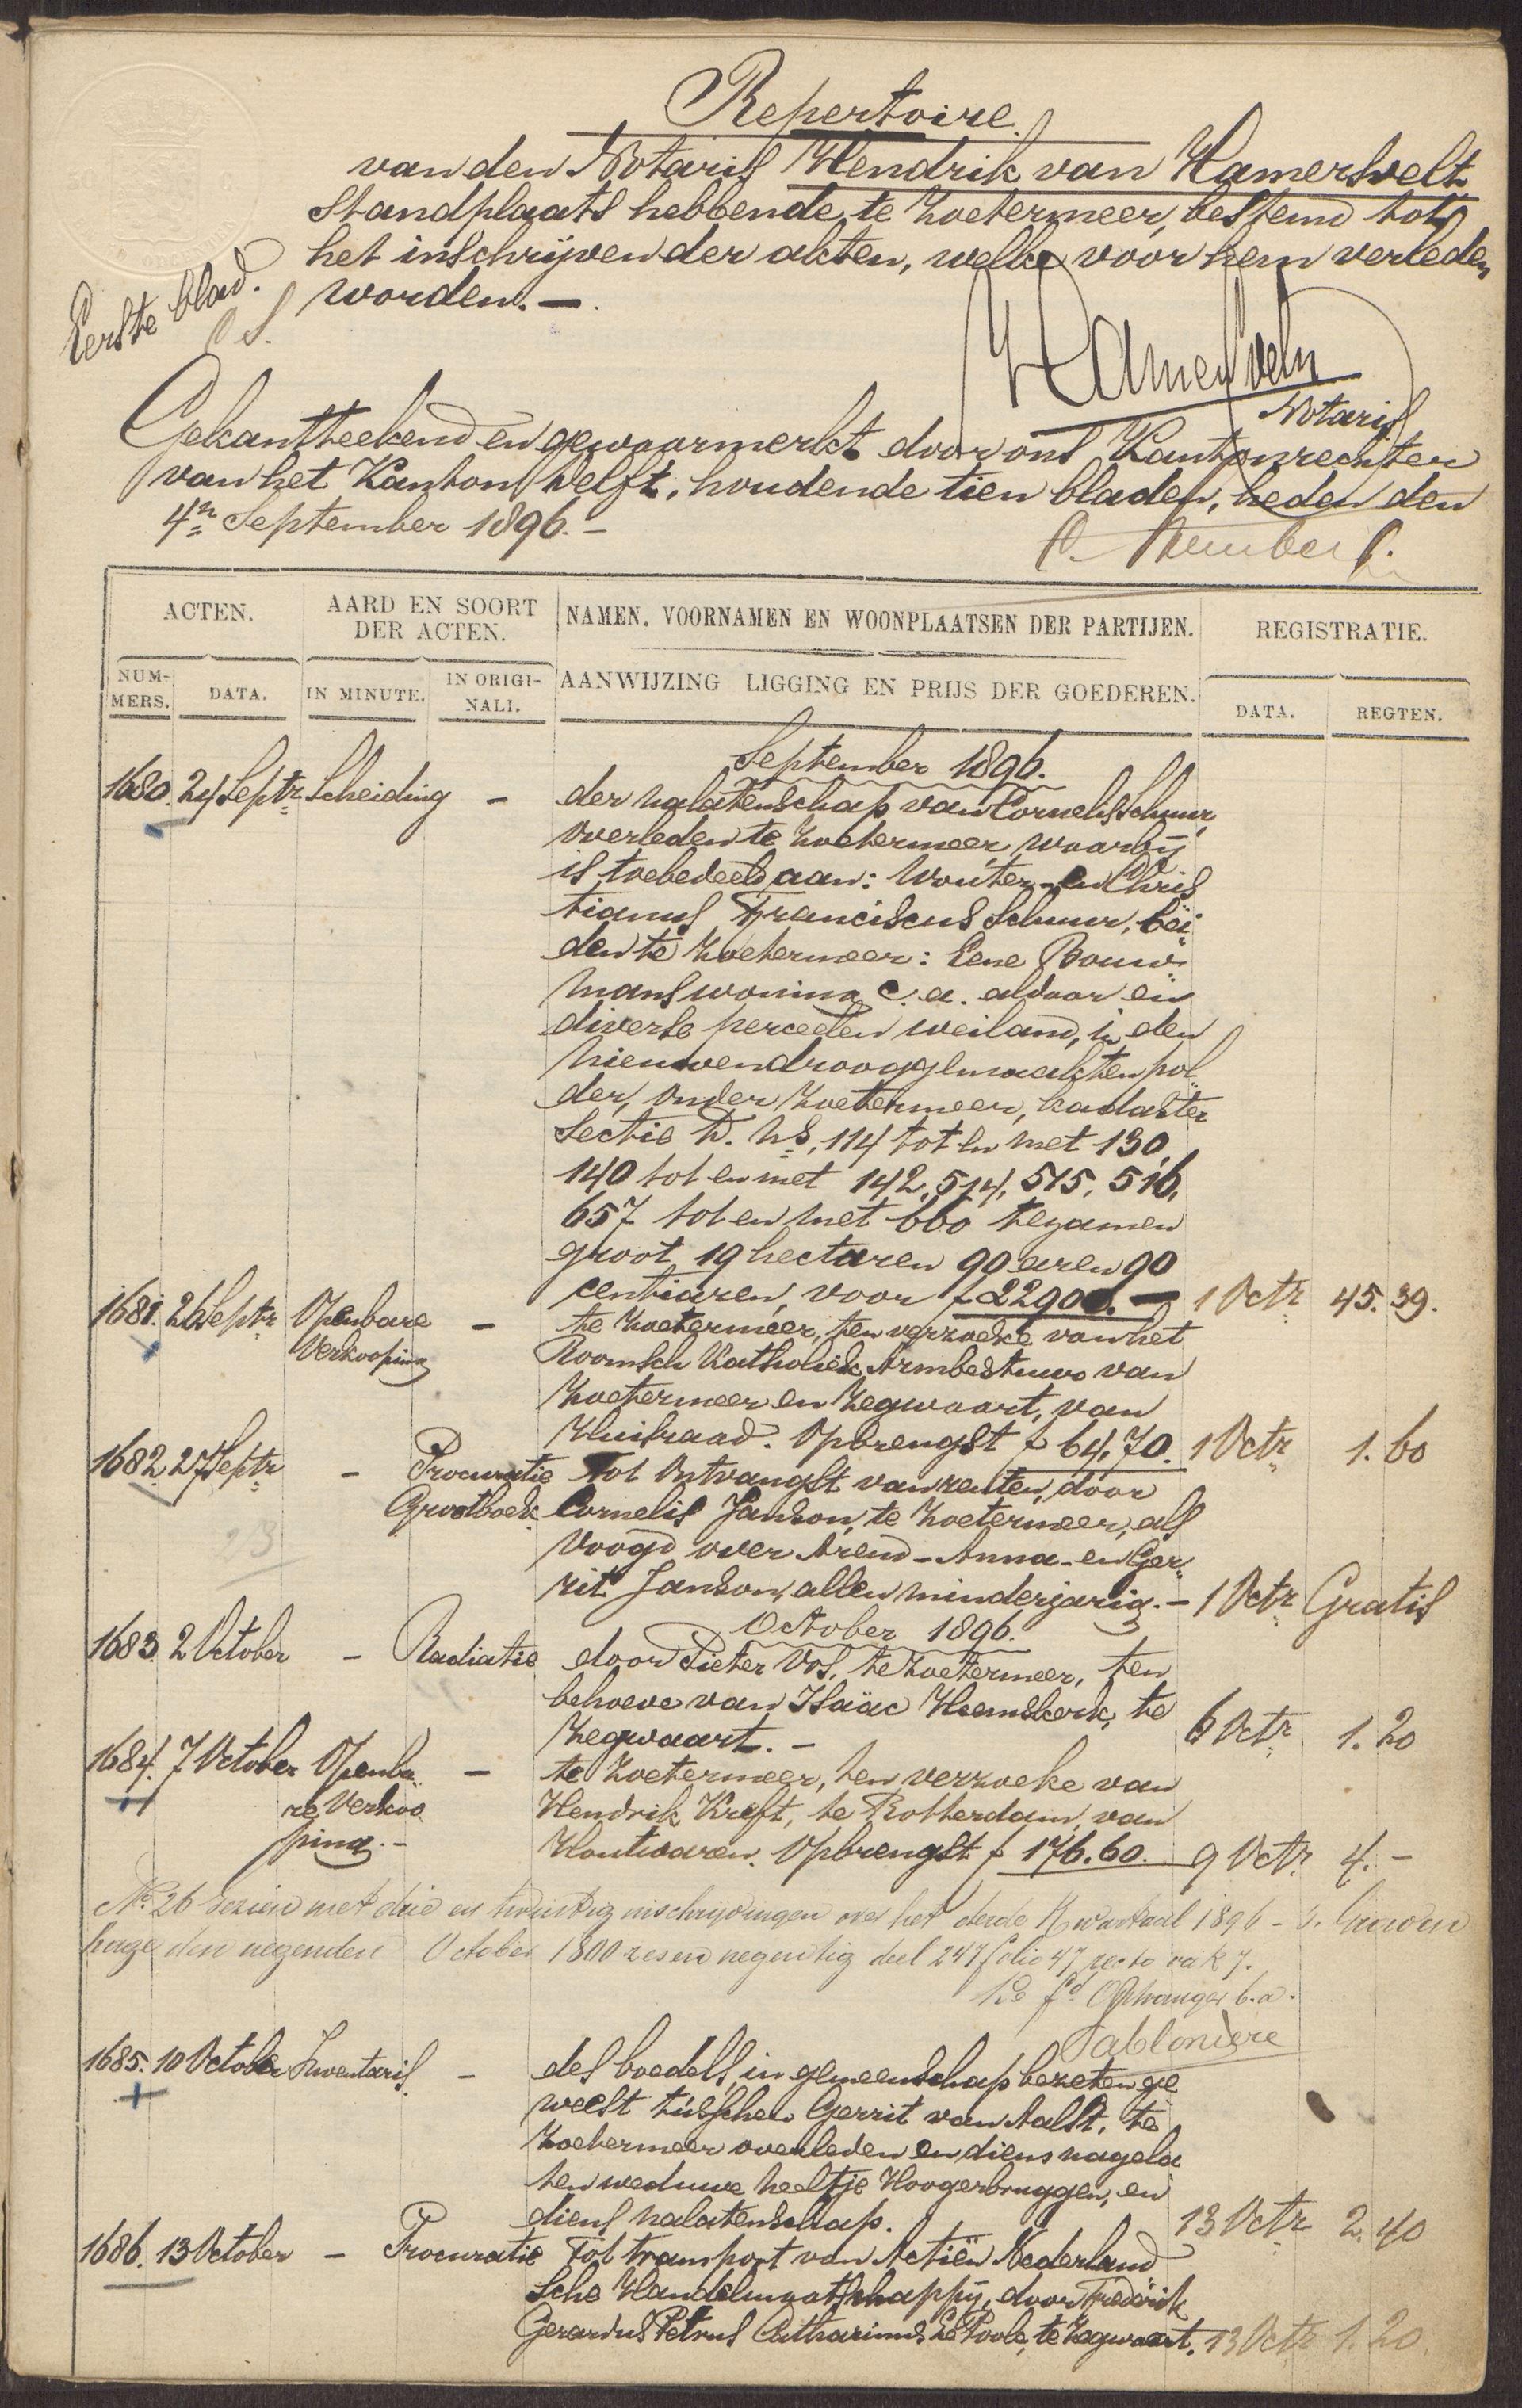 Repertoire
van den Notaris Hendrik van Hamersvelt
standplaats hebbende te Zoetermeer, bestemd tot
het inschrijven der akten, welke voor hem verleden
worden. —
Eerste blad.
Hamersvelt
Notaris
Gekantteekend en gewaarmerkt door ons Kantonrechter
van het Kanton Delft, houdende tien bladen, heden den
4n September 1896. –
ACTEN.
AARD EN SOORT
DER ACTEN.
NAMEN, VOORNAMEN EN WOONPLAATSEN DER PARTIJEN.
REGISTRATIE.
NUM-
MERS.
DATA.
IN MINUTE.
IN ORIGI-
NALI.
AANWIJZING LIGGING EN PRIJS DER GOEDEREN.
DATA.
REGTEN.
September 1896.
1680. 24 Septr Scheiding – der nalatenschap van Cornelis Schuur,
overleden te Zoetermeer, waarbij
is toebedeeld aan: Wouter- en Chris
tianus Franciscus Schuur, bei
den te Zoetermeer: Eene Bouw
manswoning c.a. aldaar en
diverse perceelen weiland, in den
Nieuwendrooggemaakten pol
der, onder Zoetermeer, kadaster
Sectie D. ns. 114 tot en met 130,
140 tot en met 142, 514, 515, 516,
657 tot en met 660 tezamen
groot 19 hectaren 90 aren 90
centiaren, voor f 22900. — 1 Octr 45. 39.
1681. 26 Septr Openbare – te Zoetermeer, ten verzoeke van het
Verkooping Roomsch Katholiek Armbestuur van
Zoetermeer en Zegwaart, van
Huisraad. Opbrengst f 64,70. 1 Octr 1. 60
1682. 27 Septr – Procuratie Tot ontvangst van renten, door
Grootboek Cornelis Janson, te Zoetermeer, als
Voogd over Arend- Anna- en Ger
rit Janson, allen minderjarig. – 1 Octr Gratis
23
October 1896.
1683. 2 October – Radiatie door Pieter Vos, te Zoetermeer, ten
behoeve van Isaäc Heemskerk, te
Zegwaart. – 6 Octr 1. 20
1684. 7 October Openba – te Zoetermeer, ten verzoeke van
re Verkoo Hendrik Kreft, te Rotterdam, van
ping. – Houtwaren. Opbrengst f 176.60. 9 Octr 4. –
No. 26 Gezien met drie en twintig inschrijvingen over het derde Kwartaal 1896 – s. Graven
hage den negenden October 1800 zes en negentig deel 247 folio 47 recto vak 7.
De fd Ontvanger b.a.
Sablonière
1685. 10 October Inventaris – des boedels, in gemeenschap bezeten ge
weest tusschen Gerrit van Aalst, te
Zoetermeer overleden en diens nagela
ten weduwe Neeltje Hoogerbruggen, en
diens nalatenschap. 13 Octr 2. 40
1686. 13 October – Procuratie Tot transport van Actiën Nederland
sche Handelmaatschappij, door Frederik
Gerardus Petrus Le Poole, te Zegwaart. 13 Octr 1. 20.